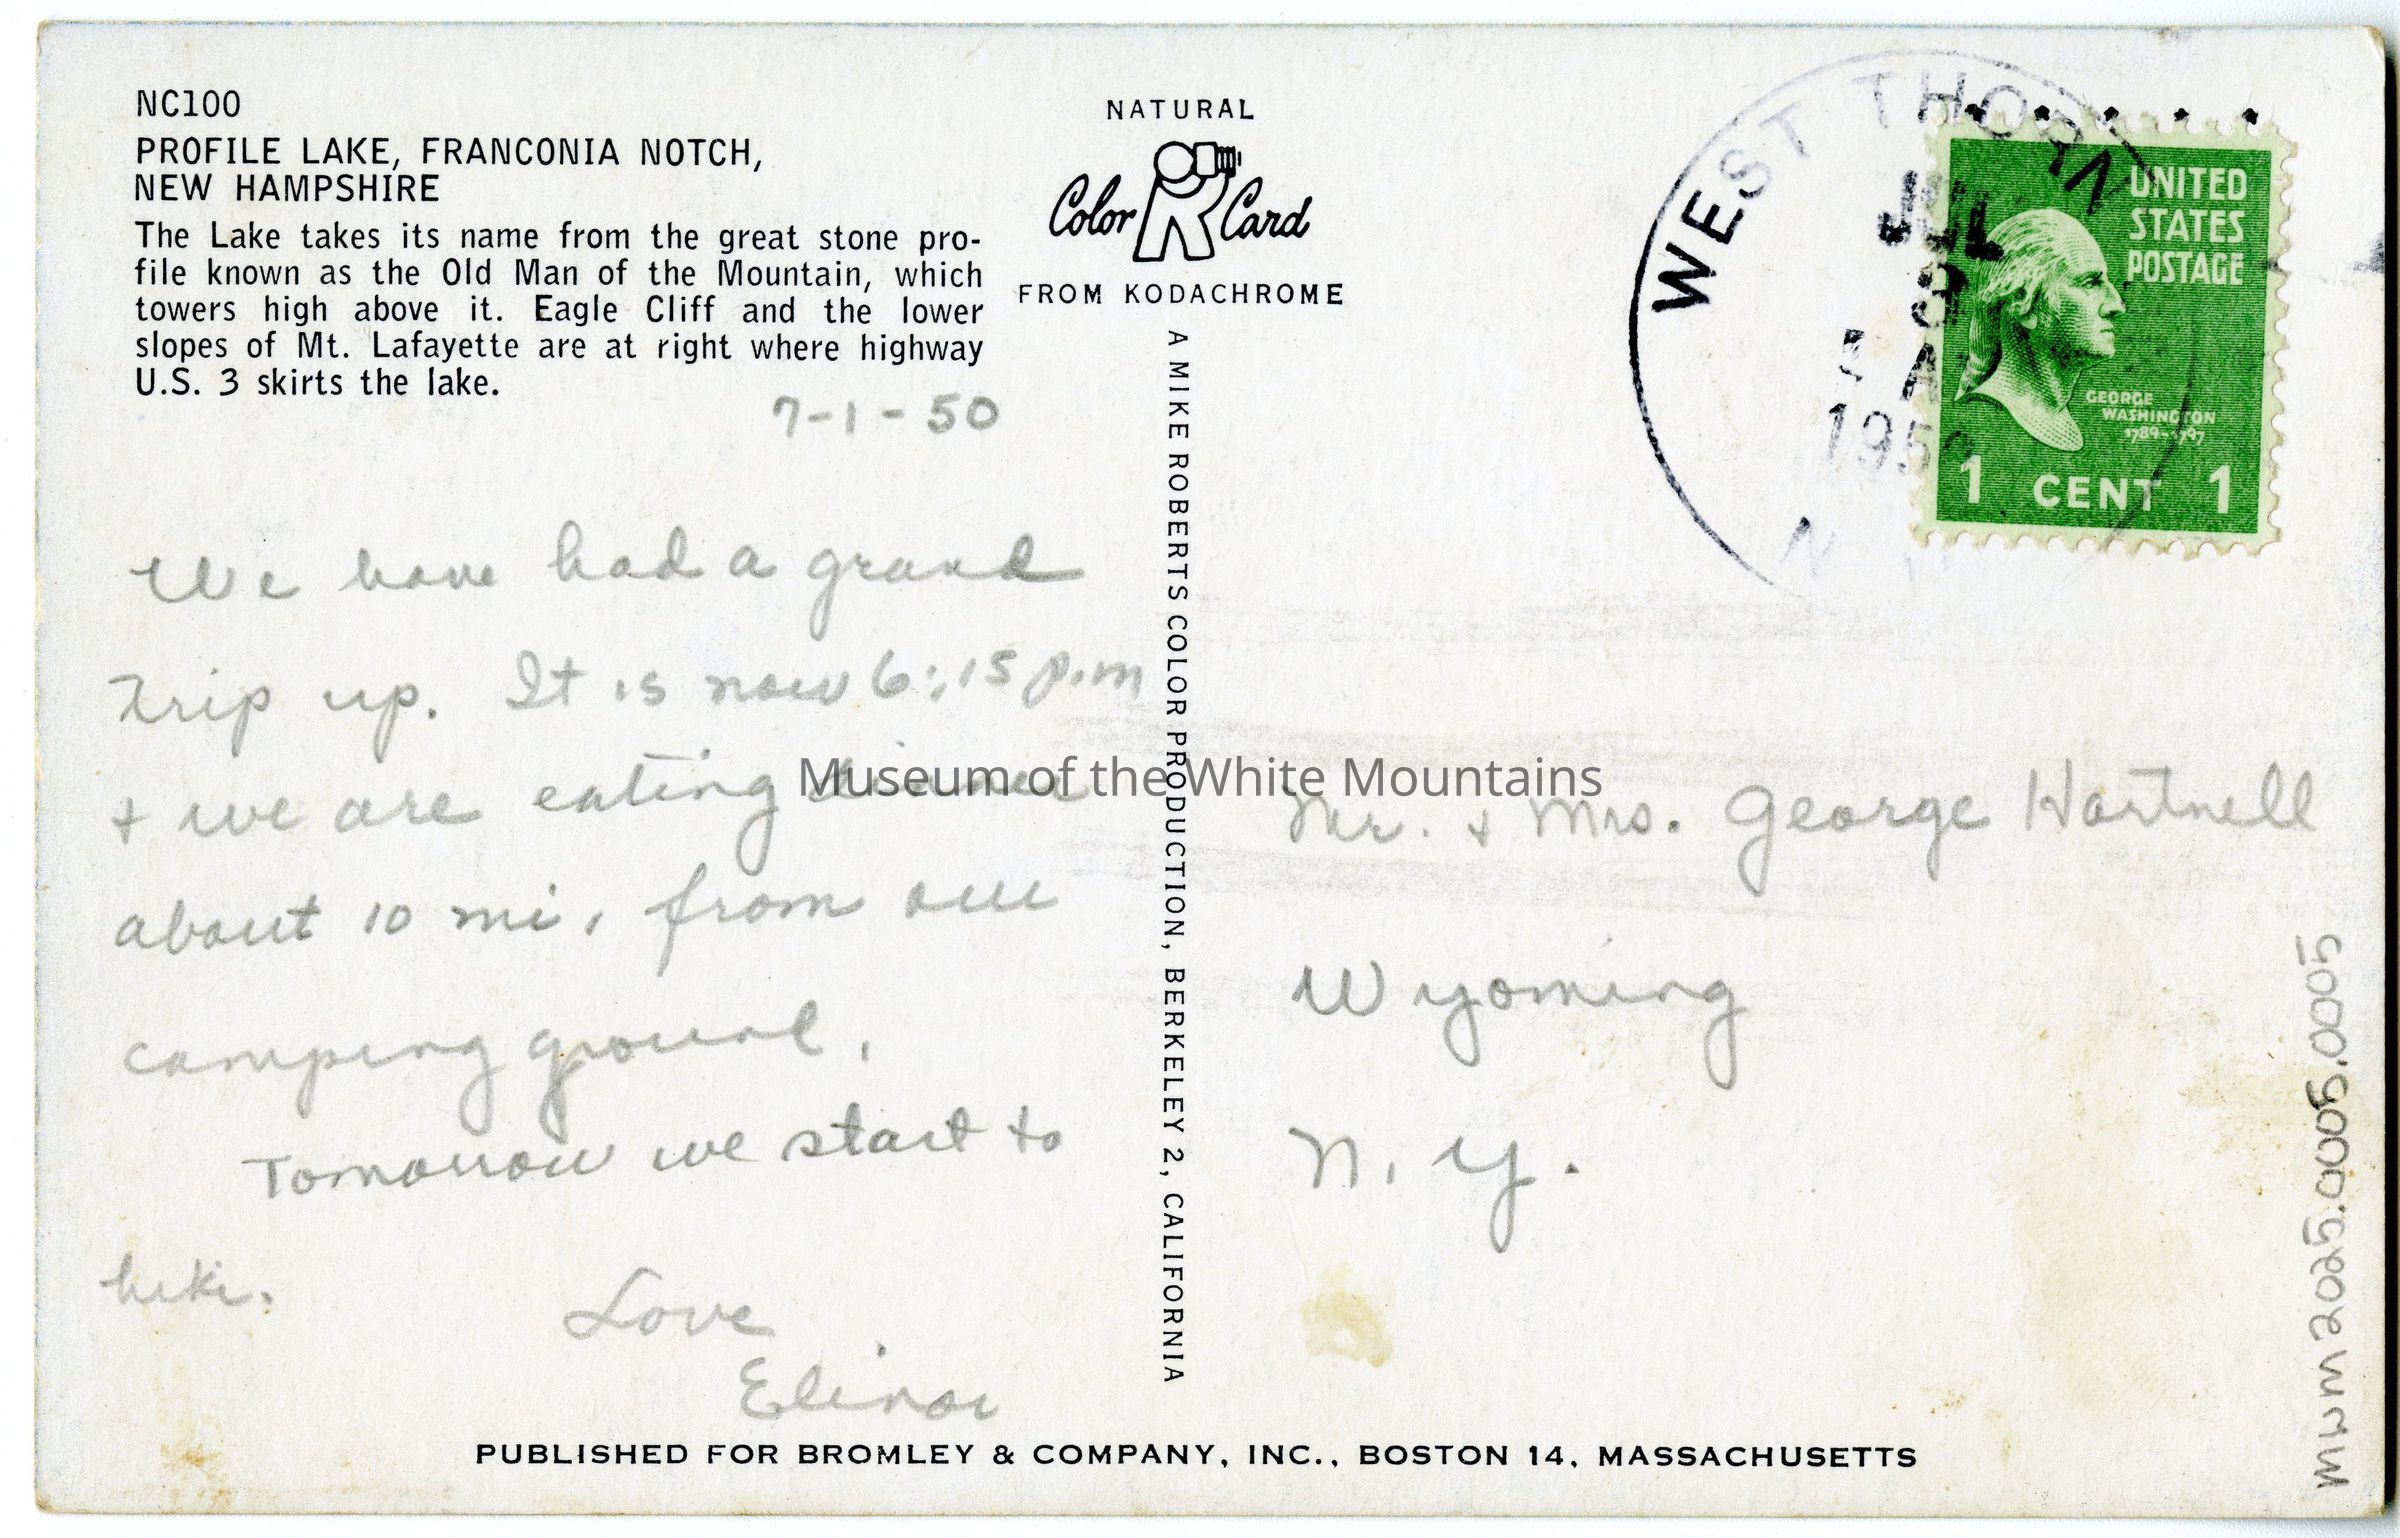 NC100
PROFILE LAKE, FRANCONIA NOTCH,
NEW HAMPSHIRE
The Lake takes its name from the great stone pro-
file known as the Old Man of the Mountain, which
towers high above it. Eagle Cliff and the lower
slopes of Mt. Lafayette are at right where highway
U.S. 3 skirts the lake.
7-1-50
We have had a grand
trip up. It is now 6:15 p.m
+ we are eating dinner
about 10 mi. from our
camping ground.
Tomorrow we start to
hike.
Love
Elinor
NATURAL
Color R Card
FROM KODACHROME
A MIKE ROBERTS COLOR PRODUCTION, BERKELEY 2, CALIFORNIA
WEST THORN
JUL
3
AM
1950
N
UNITED
STATES
POSTAGE
GEORGE
WASHINGTON
1789-1797
1 CENT 1
Museum of the White Mountains
Mr. + Mrs. George Hartnell
Wyoming
N. Y.
PUBLISHED FOR BROMLEY & COMPANY, INC., BOSTON 14, MASSACHUSETTS